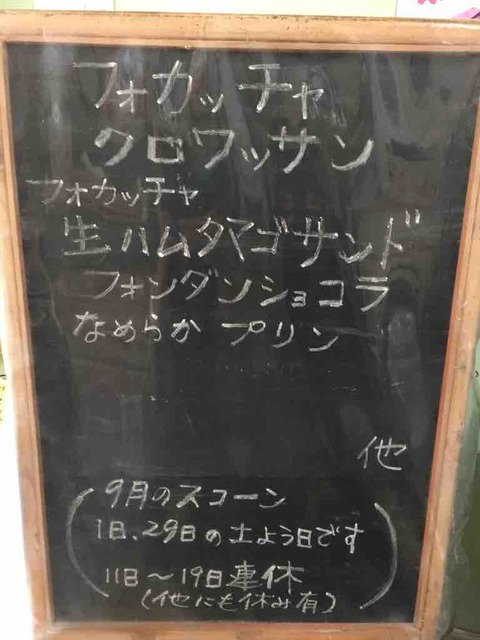 フォカッチャ
クロワッサン
フォカッチャ
生ハムタマゴサンド
フォンダンショコラ
なめらか プリン
他
(9月のスコーン
1日、29日の土よう日です
11日～19日連休
(他にも休み有))